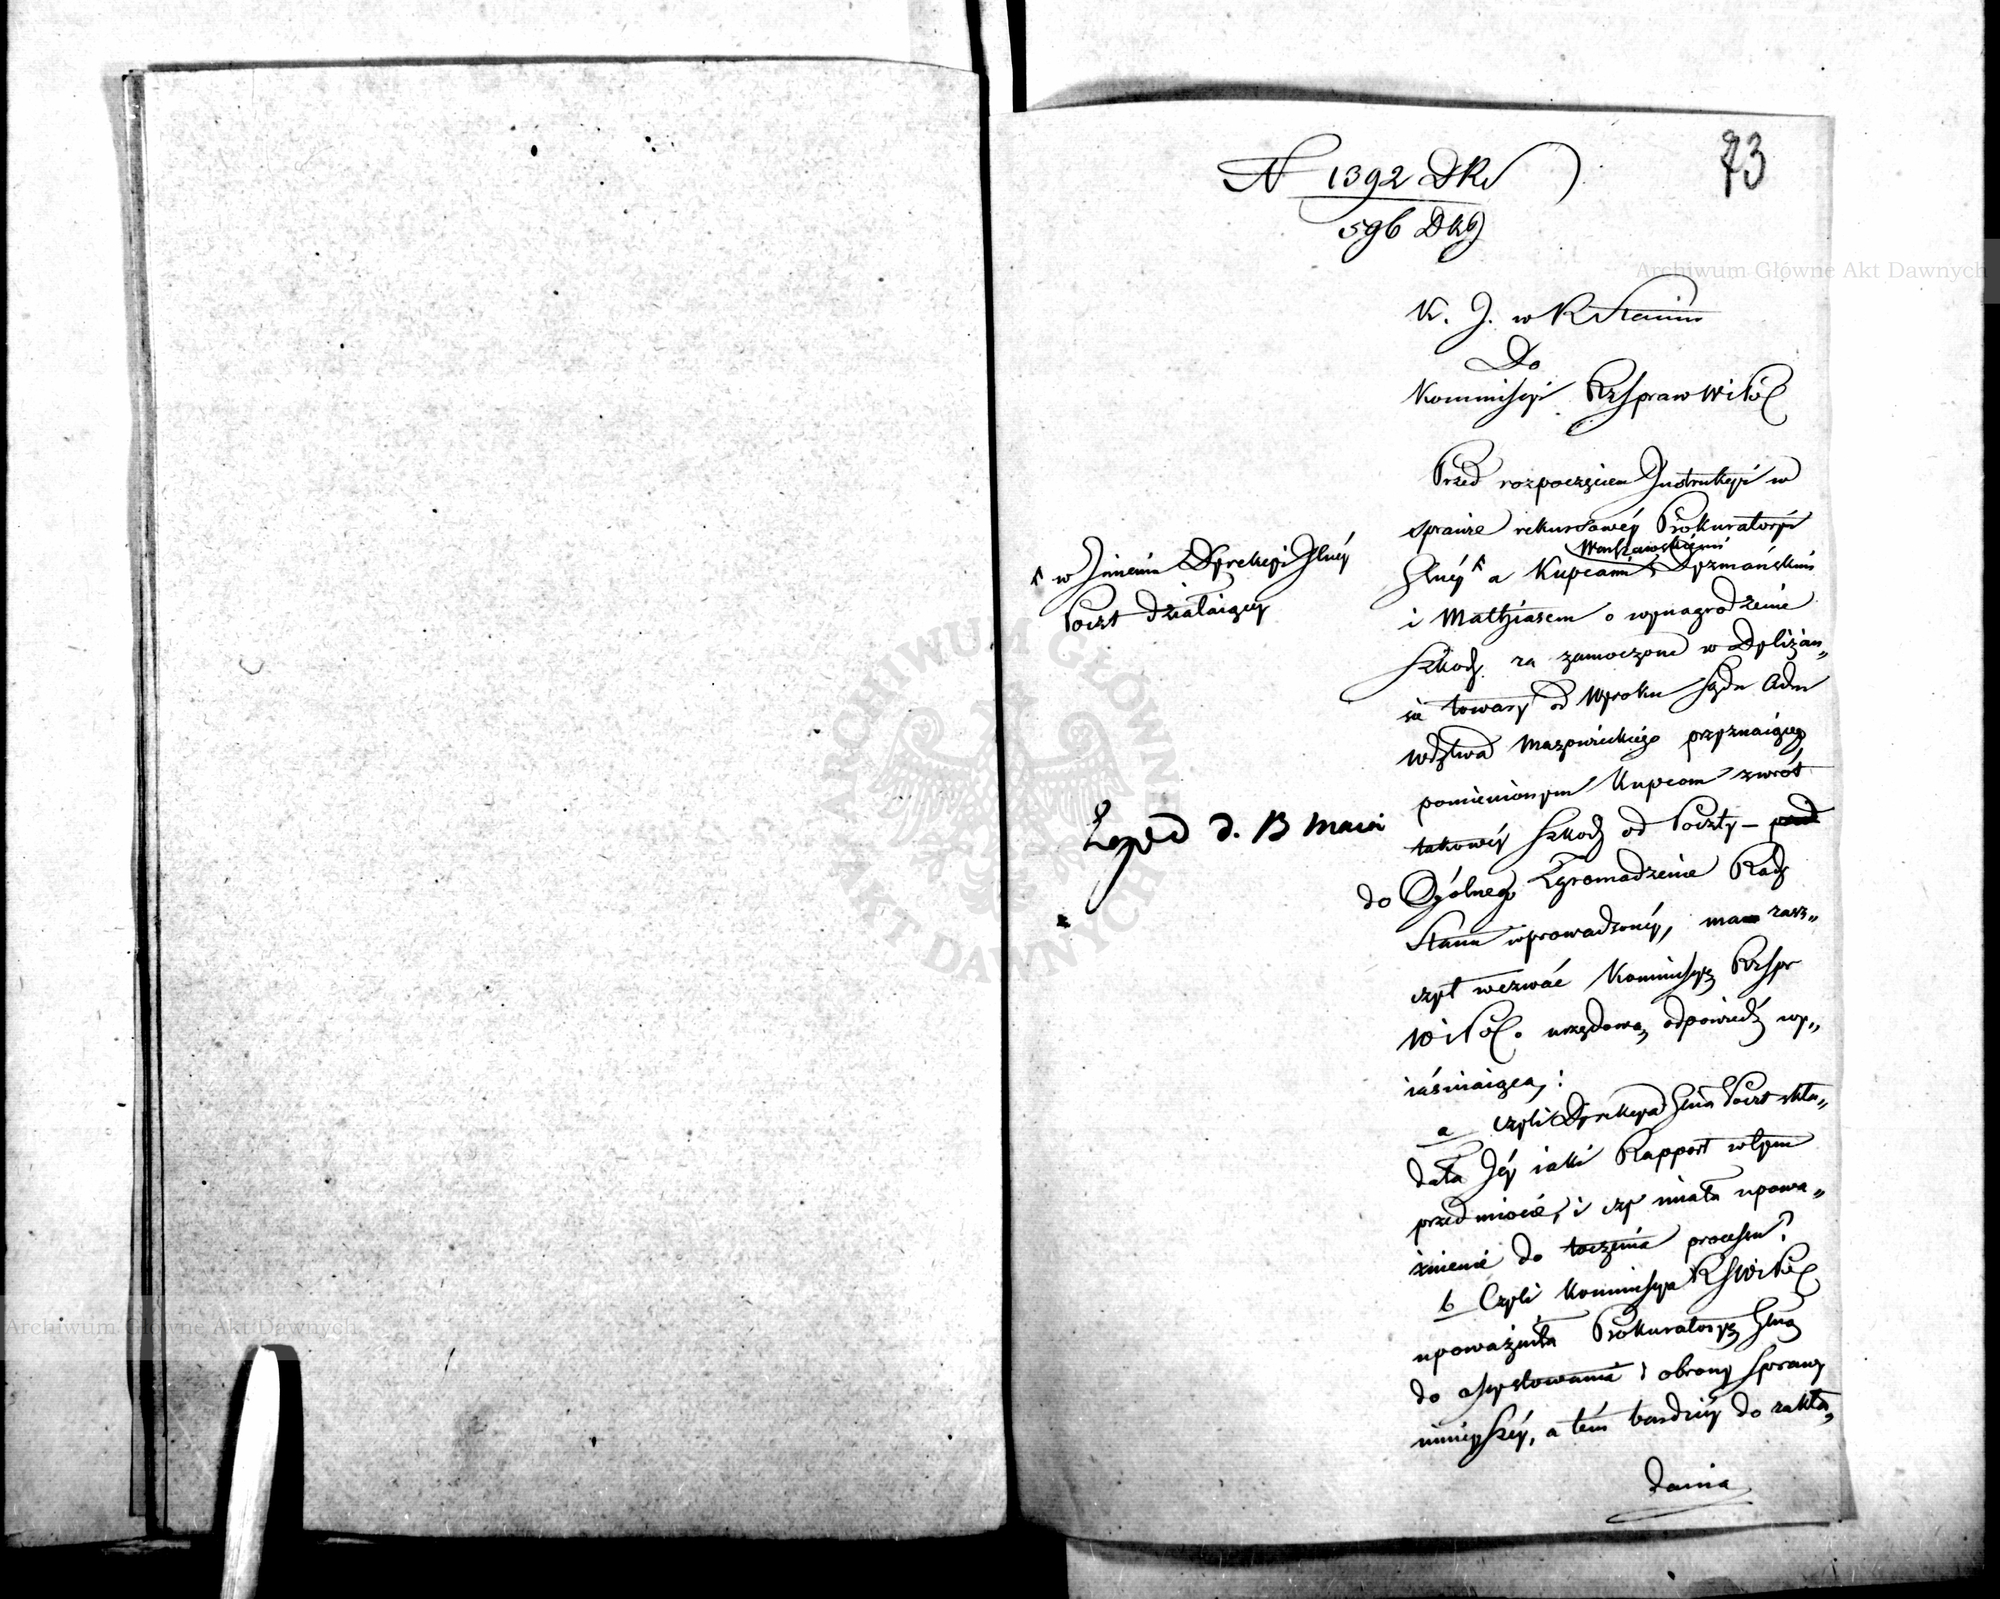 73
N 1392 DR
596 DKG
K. J. w R Stanu
Do
Kommissyi RzSpraw W i Pol
Przed rozpoczęciem Instrukcyi w
sprawie rekursowéy Prokuratoryi
Warszawskiemi
Głnéy a Kupcami Szymańskim
i Mathiasem o wynagrodzenie
Szkody za zamoczone w Dyliżan„
sie towary od Wyroku Sądu Adm
Wdztwa Mazowieckiego przyznaiącego
pomienionym Kupcom zwrot
takowéy Szkody od Poczty –
do Ogólnego Zgromadzenia Rady
Stanu wprowadzonéy, mam zasz„
czyt wezwać Kommissyą RzSpr
W i Pol. o urzędową odpowiedź wy„
iaśniaiącą:
a czyli Dyrekcya Głna Poczt skła„
dała Jéy iaki Rapport w tym
przedmiocie, i czy miała upowa„
żnienie do toczenia processu?
b Czyli Kommissya RSWiPol
upoważniła Prokuratoryą Głną
do assystowania i obrony sprawy
ninieyszéy, a tém bardziéy do zakła„
dania
w Jmieniu Dyrekcyi Głnéy
Poczt działaiącéy
Exped d. 13 Maia
Archiwum Główne Akt Dawnych
Archiwum Główne Akt Dawnych
ARCHIWUM GŁÓWNE
AKT DAWNYCH